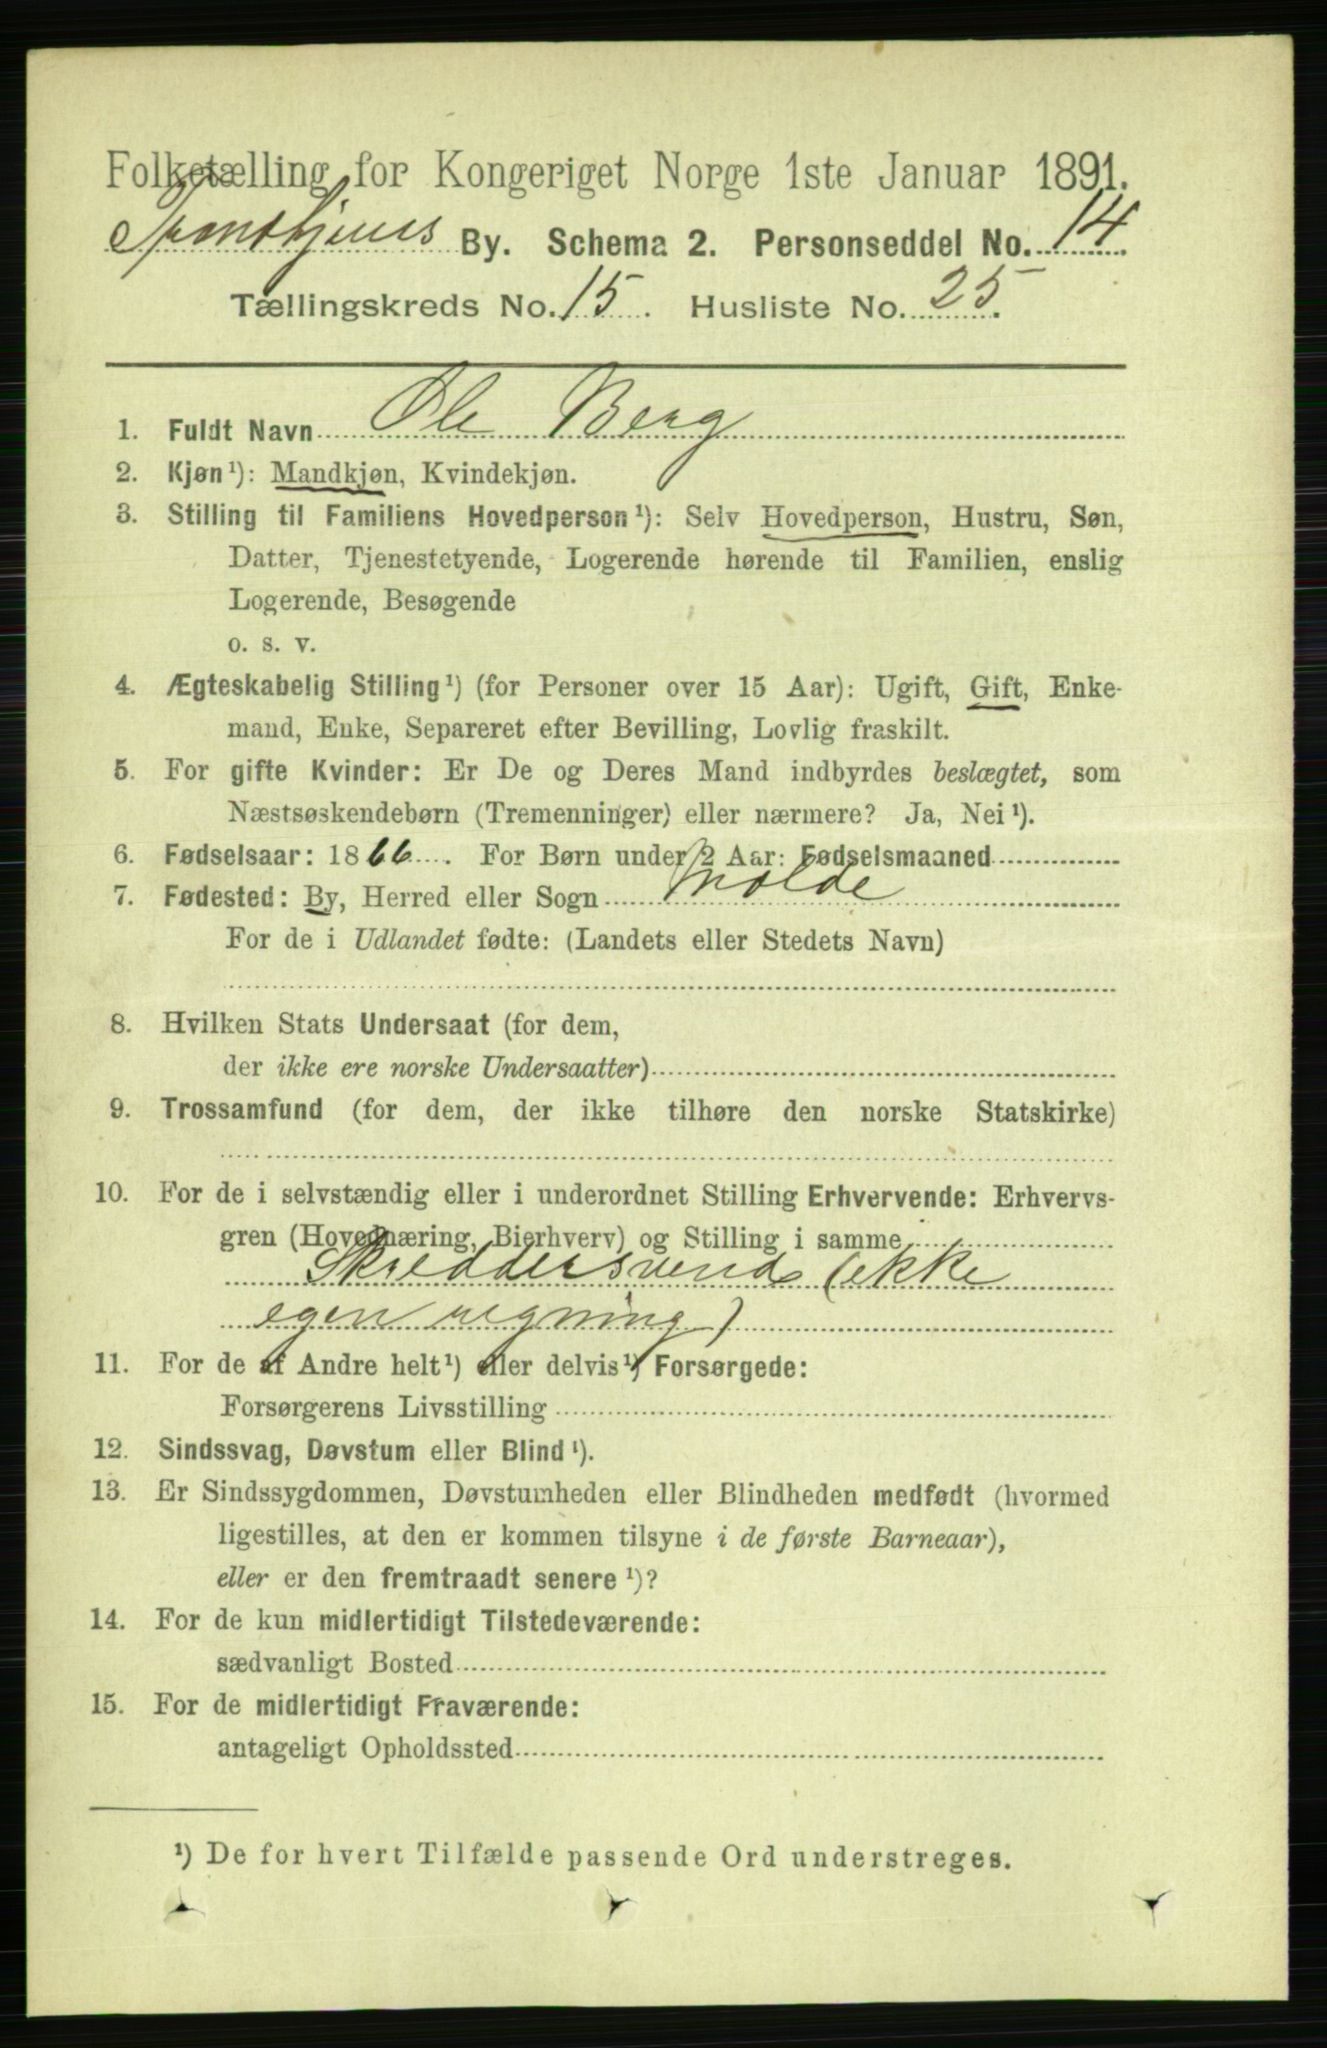 Folketælling for Kongeriget Norge 1ste Januar 1891.
Trondhjems By. Schema 2. Personseddel No. 14
Tællingskreds No. 15. Husliste No. 25.
1. Fuldt Navn Ole Berg
2. Kjøn¹): Mandkjøn, Kvindekjøn.
3. Stilling til Familiens Hovedperson¹): Selv Hovedperson, Hustru, Søn,
Datter, Tjenestetyende, Logerende hørende til Familien, enslig
Logerende, Besøgende
o. s. v.
4. Ægteskabelig Stilling¹) (for Personer over 15 Aar): Ugift, Gift, Enke-
mand, Enke, Separeret efter Bevilling, Lovlig fraskilt.
5. For gifte Kvinder: Er De og Deres Mand indbyrdes beslægtet, som
Næstsøskendebørn (Tremenninger) eller nærmere? Ja, Nei¹).
6. Fødselsaar: 1866. For Børn under 2 Aar: Fødselsmaaned
7. Fødested: By, Herred eller Sogn Molde
For de i Udlandet fødte: (Landets eller Stedets Navn)
8. Hvilken Stats Undersaat (for dem,
der ikke ere norske Undersaatter)
9. Trossamfund (for dem, der ikke tilhøre den norske Statskirke)
10. For de i selvstændig eller i underordnet Stilling Erhvervende: Erhvervs-
gren (Hovednæring, Bierhverv) og Stilling i samme
Skreddersvend (ikke
egen regning)
11. For de af Andre helt¹) eller delvis¹) Forsørgede:
Forsørgerens Livsstilling
12. Sindssvag, Døvstum eller Blind¹).
13. Er Sindssygdommen, Døvstumheden eller Blindheden medfødt (hvormed
ligestilles, at den er kommen tilsyne i de første Barneaar),
eller er den fremtraadt senere¹)?
14. For de kun midlertidigt Tilstedeværende:
sædvanligt Bosted
15. For de midlertidigt Fraværende:
antageligt Opholdssted
¹) De for hvert Tilfælde passende Ord understreges.